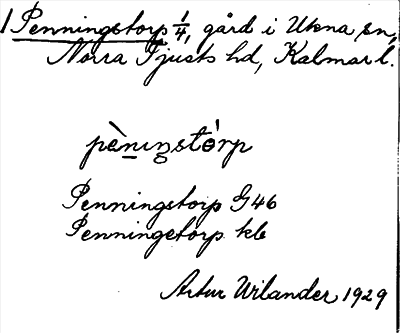 1 Penningstorp 1/4, gård i Ukna sn,
Norra Tjusts hd, Kalmar l.
pènıŋstórp
Penningstorp G46
Penningetorp kb
Artur Wilander 1929